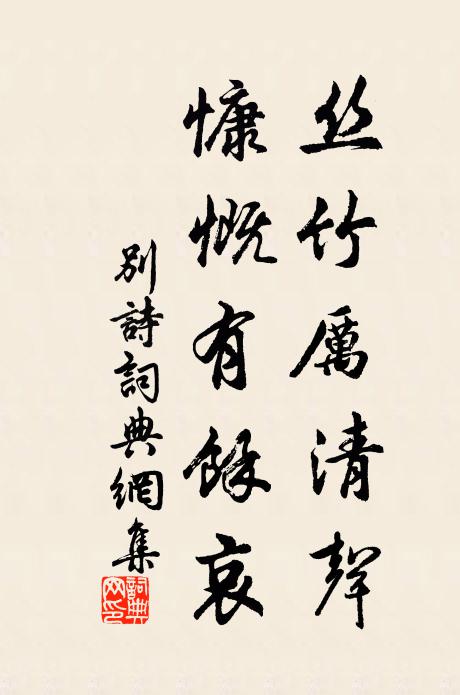 丝竹厲清聲
慷慨有餘哀
别詩詞典網集
詞典网印